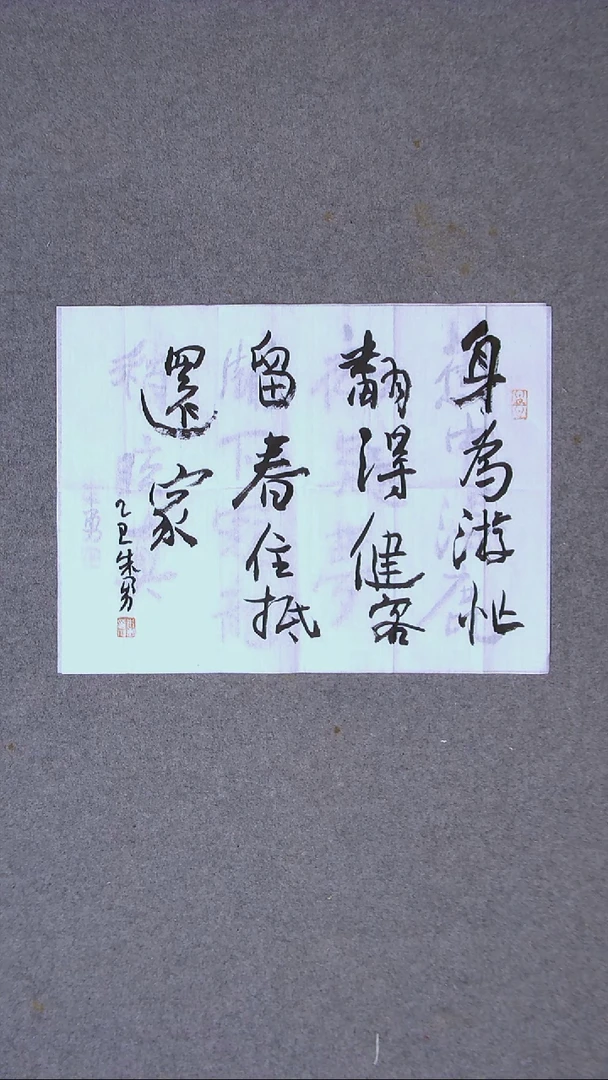 身為游忙
翻得健客
留春住抵
還家
乙巳朱勇